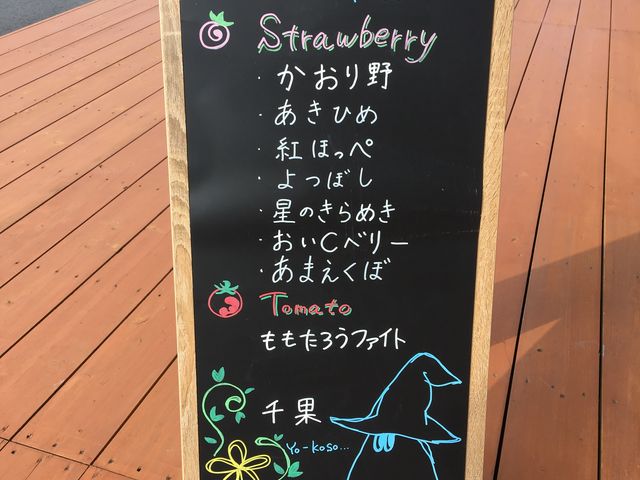 Strawberry
・かおり野
・あきひめ
・紅ほっぺ
・よつぼし
・星のきらめき
・おいCベリー
・あまえくぼ
Tomato
ももたろうファイト
千果
Yo-koso...